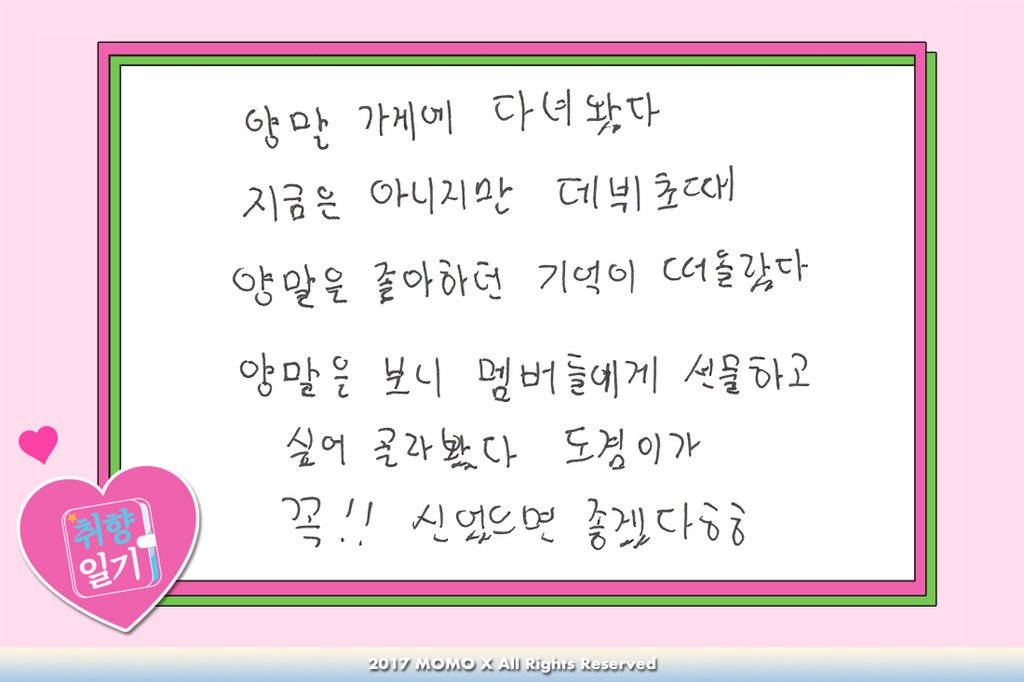 양말 가게에 다녀왔다
지금은 아니지만 데뷔초때
양말을 좋아하던 기억이 떠돌랐다
양말은 보니 멤버들에게 선물하고
싶어 골라봤다 도겸이가
꼭!! 신었으면 좋겠다ㅎㅎ
취향
일기
2017 MOMO X All Rights Reserved